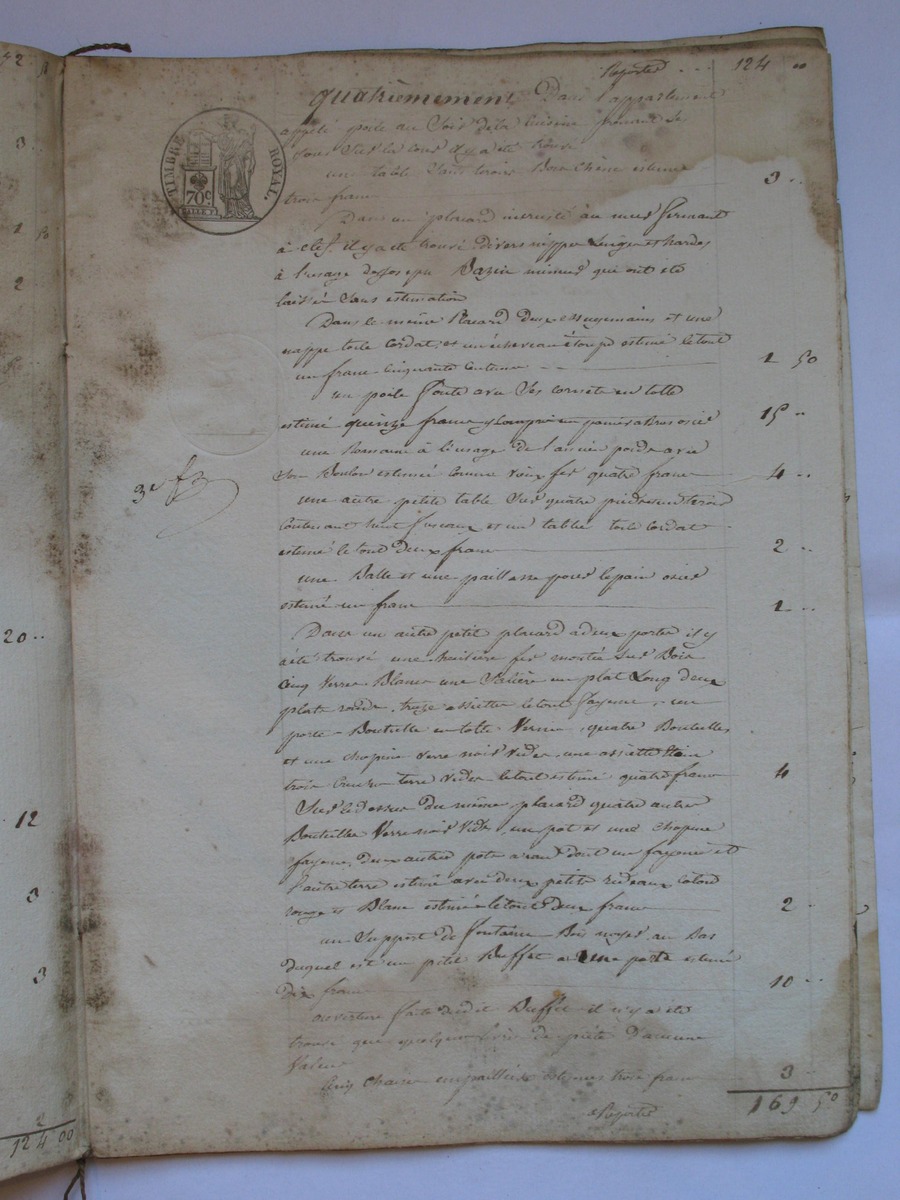 52
3
1 50
2
20 ..
12
3
3
124 00
TIMBRE ROYAL.
70 c
3e
Reporté . . . 124 00
quatrièmement Dans l'appartement
appelé poële au Soir de la Cuisine prenant Ses
Jours Sur la Cour il y a été trouvé
une table Sans tiroir Bois Chêne estimée
trois francs 3 ..
Dans un placard incrusté au mur fermant
à clef. il y a été trouvé divers nippes Linges et hardes
à l'usage de Joseph Bazin mineur qui ont été
laissés Sans estimation
Dans le même Placard deux essuyemains et une
nappe toile Cordat, et un écheveau étoupe estimé le tout
un franc Cinquante Centimes 1 50
un poële fonte avec Ses cornets en tolle
estimé quinze francs y Compris un panier osier 15 ..
une Romaine à l'usage de l'ancien poids avec
Son Boulon estimée comme vieux fer quatre francs 4 ..
une autre petite table Sur quatre pieds un tiroir
Contenant huit fuseaux et un tablier toile Cordat
estimé le tout deux francs 2 ..
une Balle et une paillasse pour le pain osier
estimé un franc 1 ..
Dans un autre petit placard à deux portes il y
a été trouvé une huilière fer montée Sur Bois
Cinq Verres Blancs une Salière un plat Long deux
plats ronds, treize assiettes le tout fayence, un
porte-Bouteille en tolle Vernie, quatre Bouteilles
et une chopine verre noir vides une assiette Etain
trois Cruzes terre vides le tout estimé quatre francs 4
Sur le dessus du même placard quatre autres
Bouteilles Verre noir Vide, un pot et une chopine
fayence, deux autres pots à eau dont un fayence et
l'autre terre estimé avec deux petits rideaux Coton
rouge et Blanc estimés le tout deux francs 2 .
un Support de fontaine Bois noyer au Bas
duquel est un petit Buffet à une porte estimé
Dix francs 10 ..
ouverture faite dudit Buffet il n'y a été
trouvé que quelques livres de piété d'aucune
Valeur
Cinq Chaises empaillées estimées trois francs 3 .
à Reporter 169 50